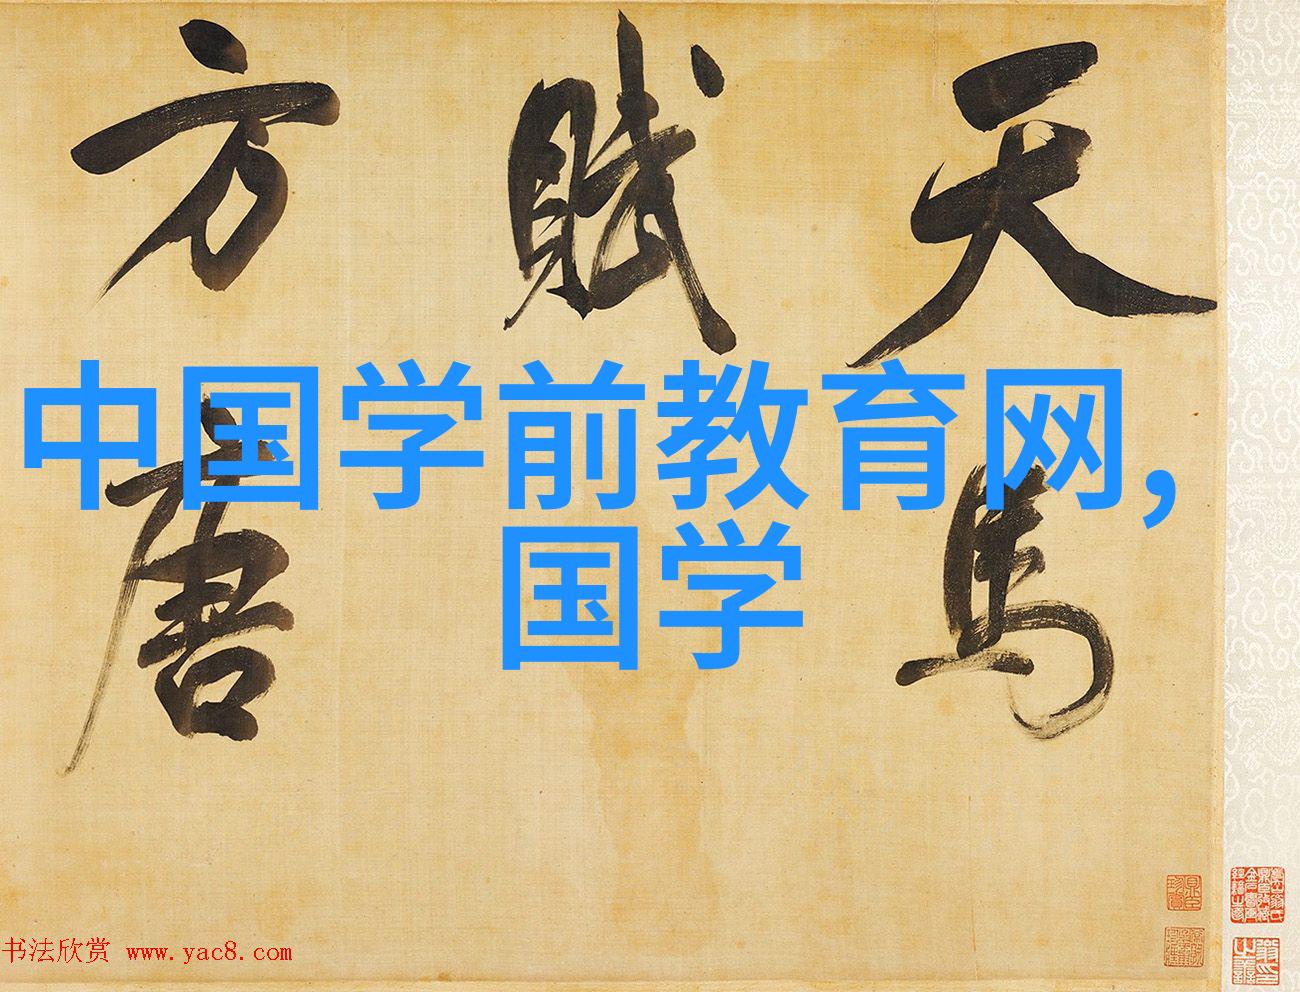 天馬
賦
方唐
中国学前教育网,
国学
书法欣赏 www.yac8.com